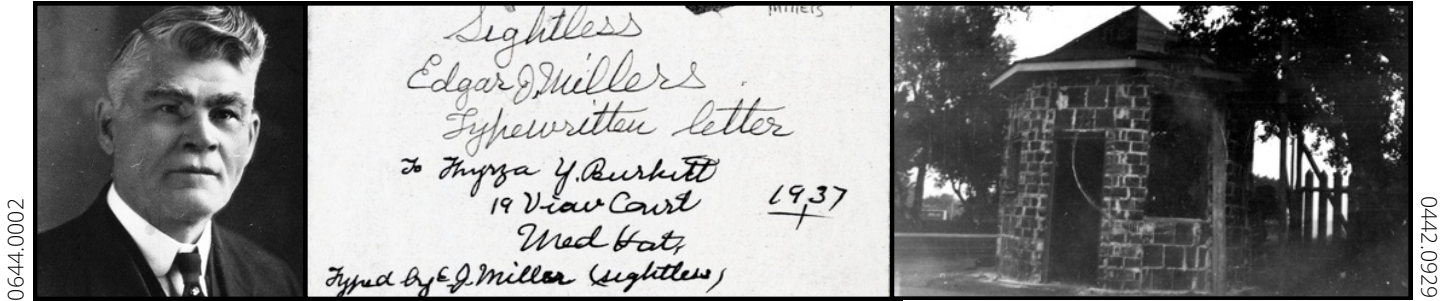 0644.0002
Millers
Sightless
Edgar J. Millers
Typewritten letter
To Thyrza Y. Burkitt
19 View Court
1937
Med Hat,
Typed by E. J. Miller (sightless)
0442.0929